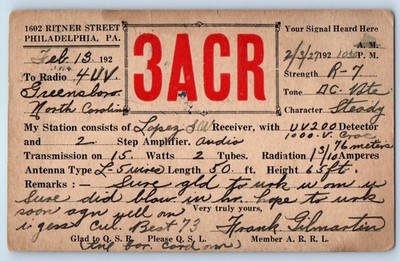 1602 RITNER STREET
PHILADELPHIA, PA.
Your Signal Heard Here
Feb. 13 192
2/3/27 192 A. M. P. M.
3ACR
To Radio 4UV
Strength R-7
Greensboro
Tone DC. Vte
North Carolina
Character Steady
My Station consists of Lopez SW Receiver, with UV200 Detector
and 2 Step Amplifier. Audio 1000. V.
76 meters
Transmission on 15. Watts 2 Tubes. Radiation 1 3/10 Amperes
Antenna Type L-5 wires Length 50 ft. Height 65 ft.
Remarks :— Sure gld to wrk u om u
Sure did blow in hr. hope to wrk
soon agn well om
Very truly yours,
i gess cul. Best 73 Frank Gilmartin
Glad to Q. S. R. Please Q. S. L. Member A. R. R. L.
card om